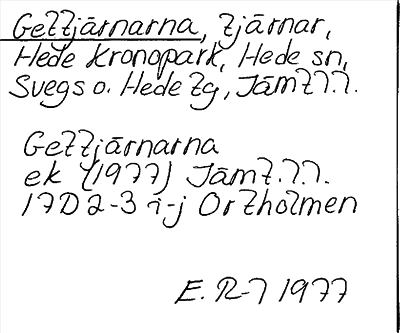 Gettjärnarna, tjärnar,
Hede kronopark, Hede sn,
Svegs o. Hede tg, Jämtl.
Gettjärnarna
ek (1977) Jämt.l.
17D 2-3 i-j Ortholmen
E. R-7 1977